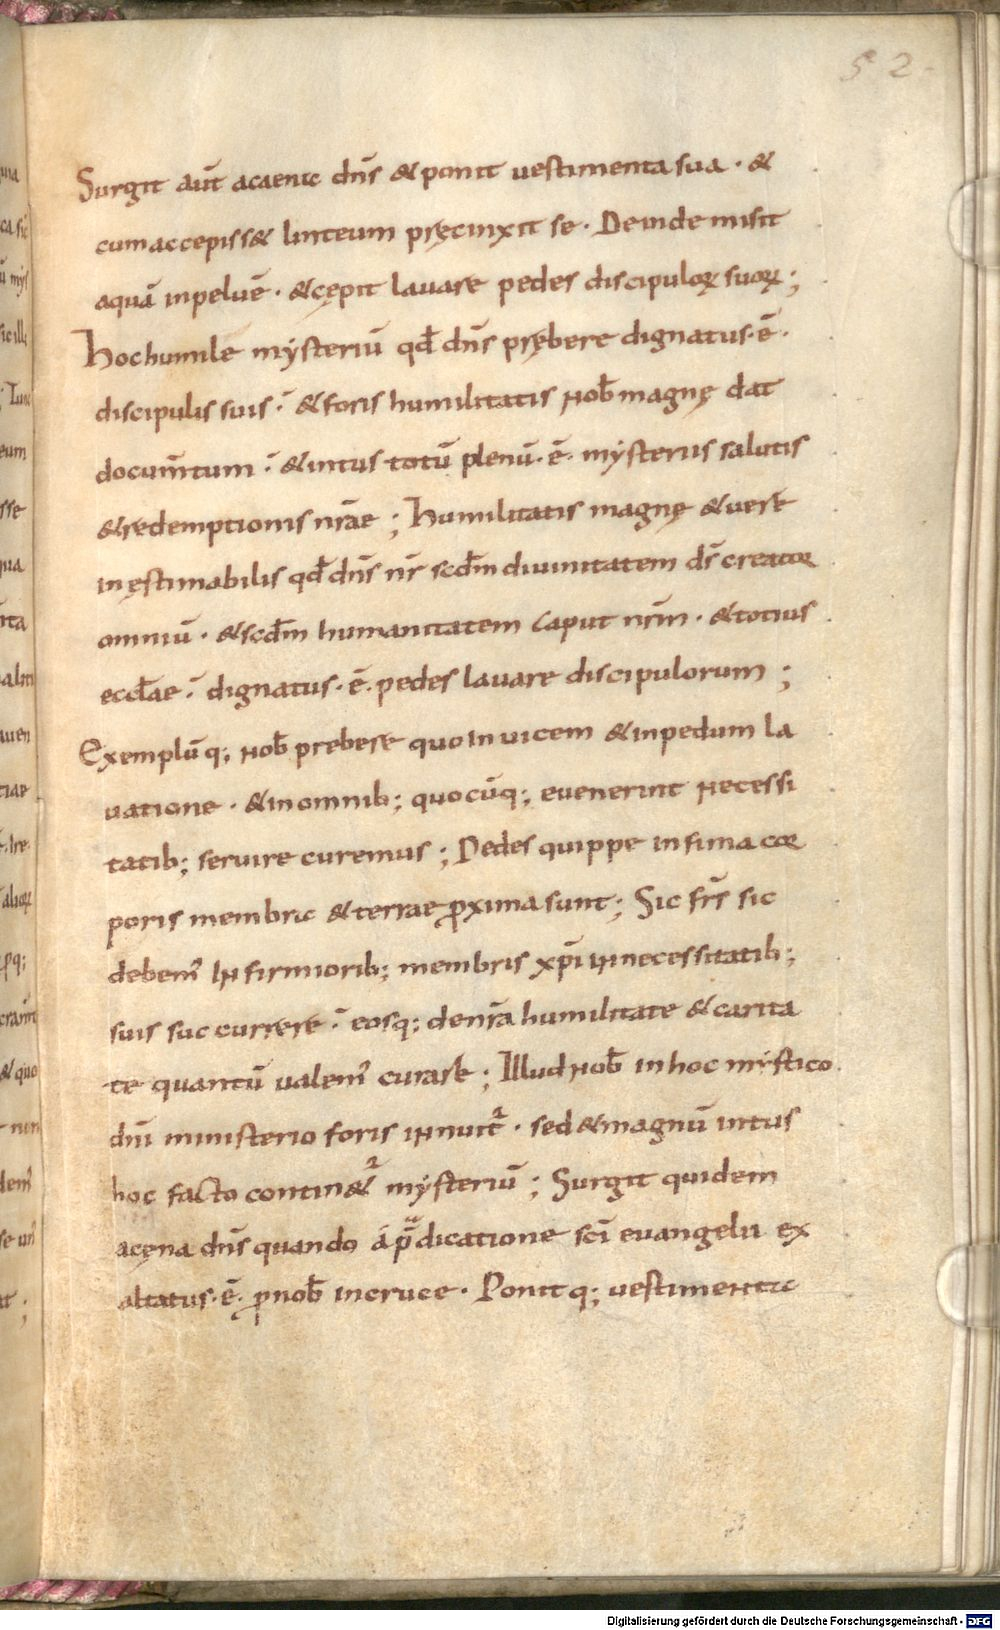 52.
Surgit aut̄ acaena dn̄s & ponit vestimenta sua · &
cum accepiss& linteum pręcinxit se · Deinde misit
aquā in peluē · & cępit lavare pedes discipuloꝝ suoꝝ ;
Hoc humile mysteriū qd̄ dn̄s prębere dignatus · ē ·
discipulis suis · & foris humilitatis nob̄ magnę dat
documn̄tum · & intus totū plenū · ē · mysteriis salutis
& redemptionis nr̄ae ; Humilitatis magnę & vere
inęstimabilis qd̄ dn̄s nr̄ scd̄m divinitatem ds̄ creator
omniū · & scd̄m humanitatem caput nr̄m · & totius
eccl̄ae · dignatus · ē · pedes lavare discipulorum ;
Exemplū q; nob̄ prebere quo in vicem & in pedum la
vatione · & in omnib; quocūq; evenerint necessi
tatib; servire curemus ; Pedes quippe infima cor
poris membra & terrae ꝓxima sunt ; Sic frs̄ sic
debem' infirmiorib; membris xp̄i in necessitatib;
suis succurrere · eosq; de nr̄a humilitate & carita
te quantū valem' curare ; Illud nob̄ in hoc mystico
dn̄i ministerio foris innuit᷑ · sed & magnū intus
hoc facto contin&᷑ mysteriū ; Surgit quidem
acęna dn̄s quando á p̄dicatione sc̄i evangelii ex
altatus · ē · ꝓ nob̄ in cruce · Ponit q; vestimenta
Digitalisierung gefördert durch die Deutsche Forschungsgemeinschaft - DFG